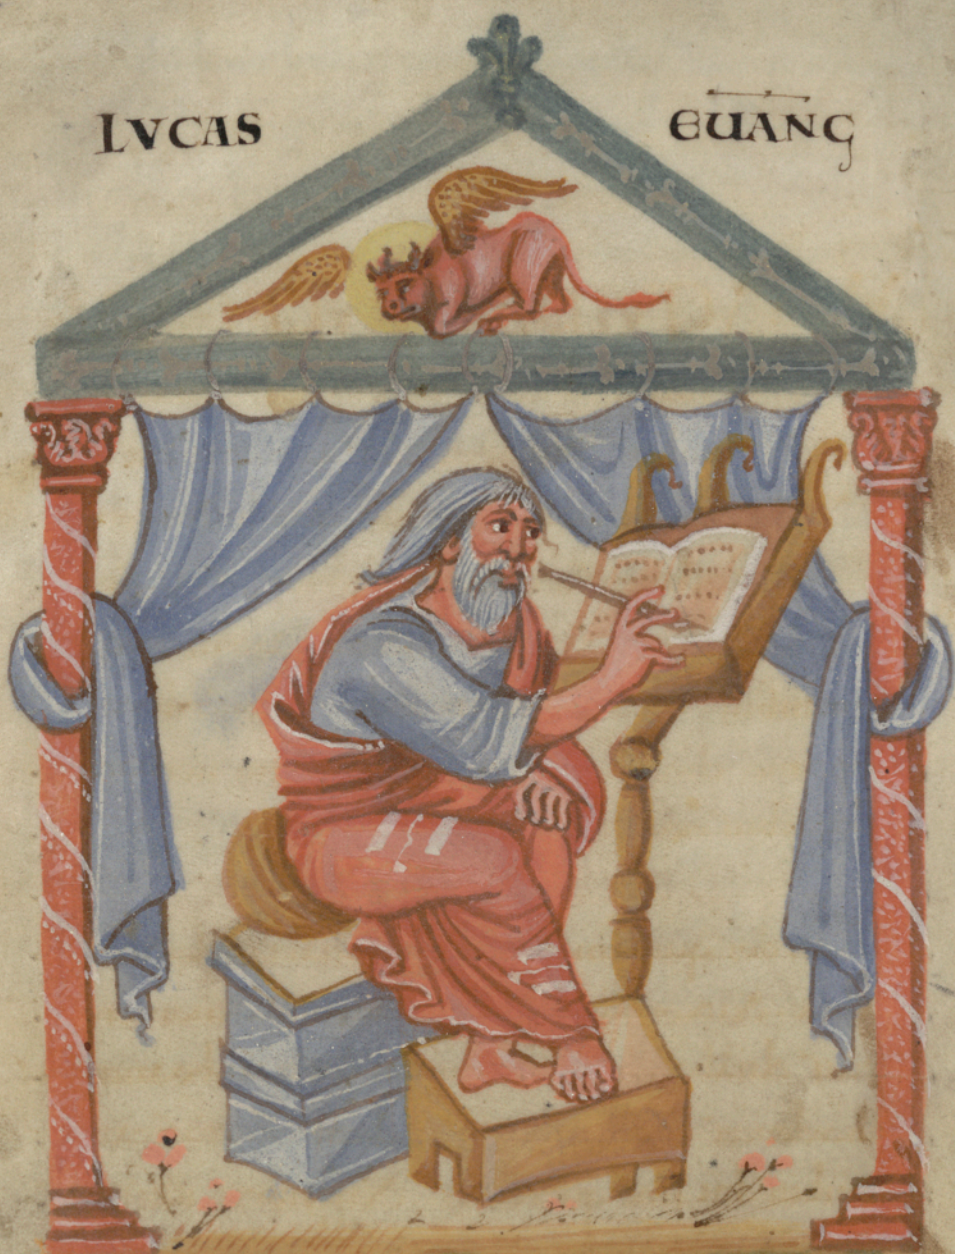 LVCAS EUANG